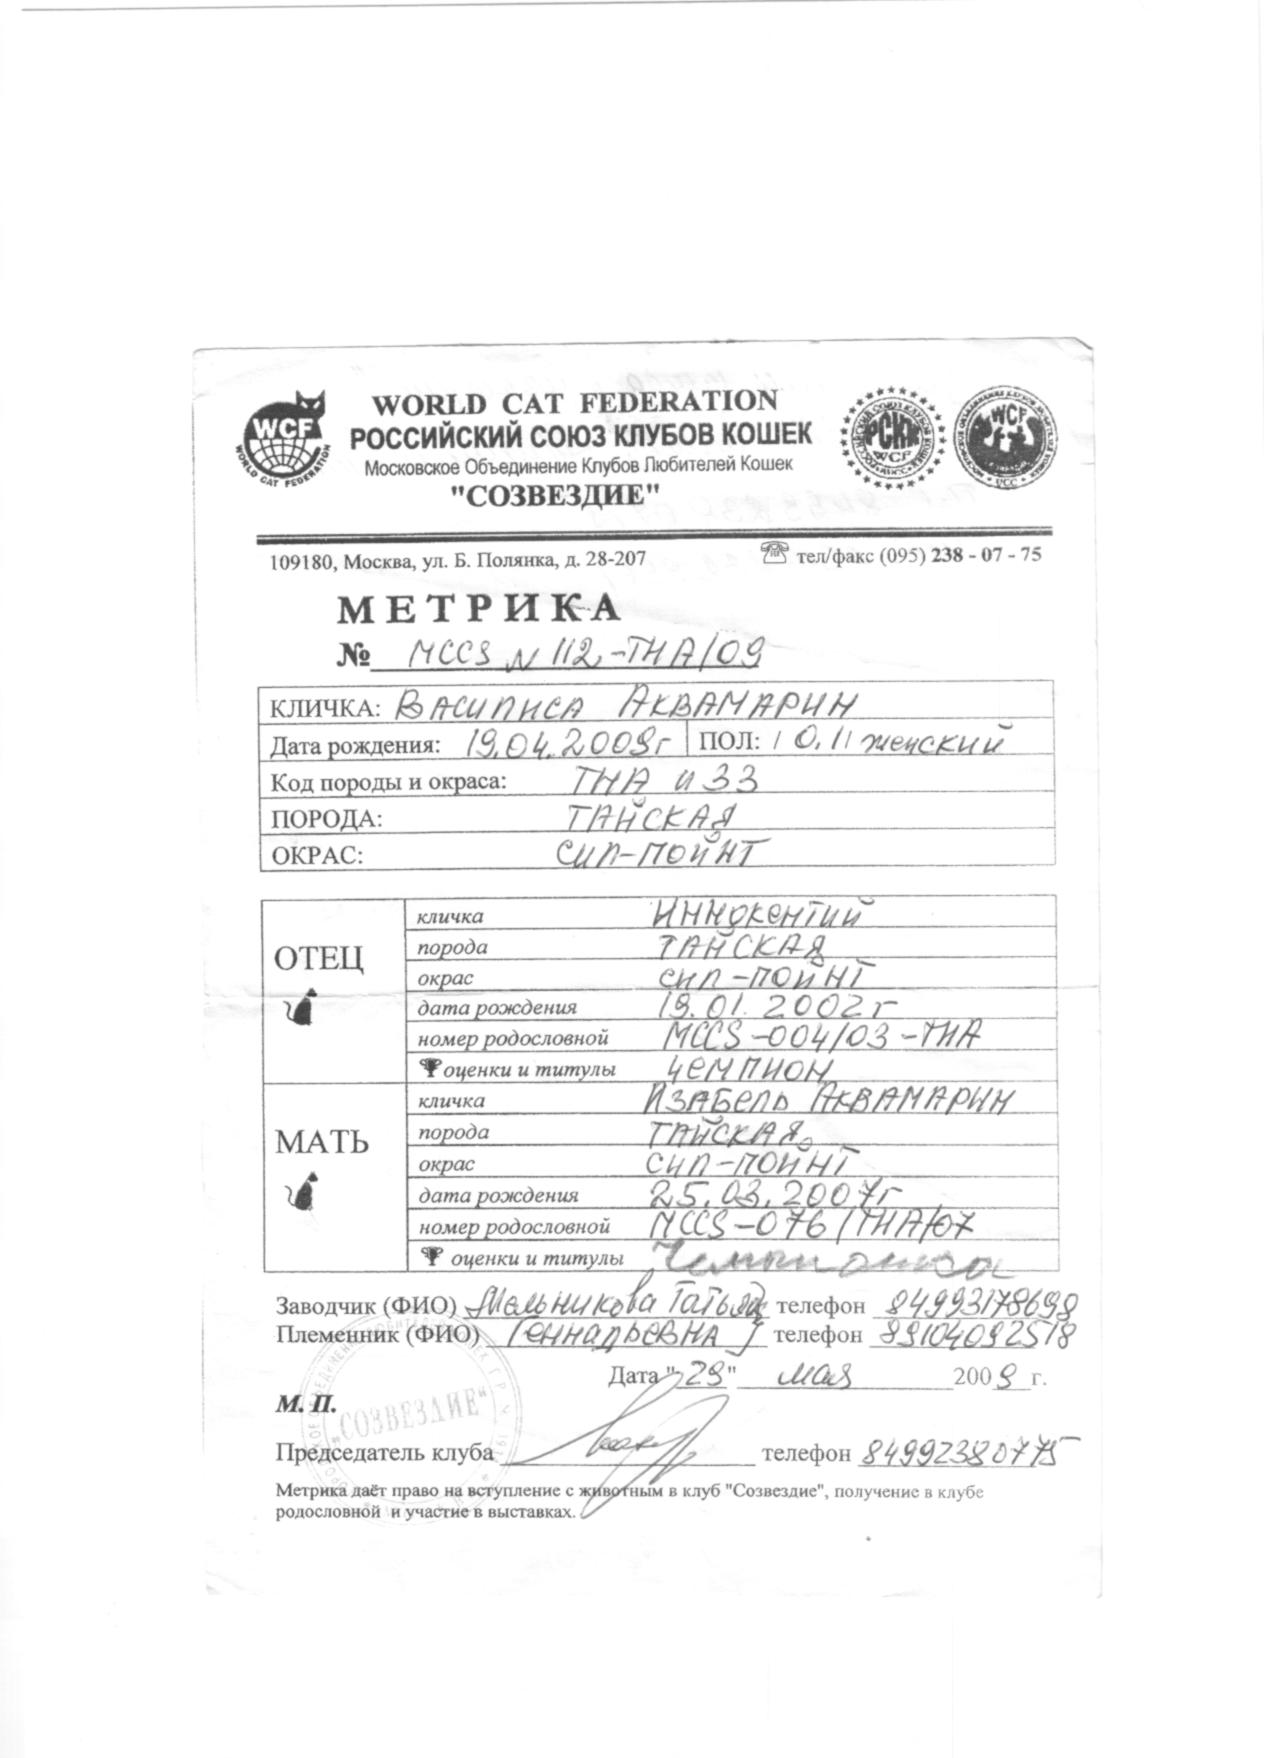 WORLD CAT FEDERATION
РОССИЙСКИЙ СОЮЗ КЛУБОВ КОШЕК
Московское Объединение Клубов Любителей Кошек
"СОЗВЕЗДИЕ"
WCF
WORLD CAT FEDERATION
РСКК
WCF
WCF
109180, Москва, ул. Б. Полянка, д. 28-207 тел/факс (095) 238 - 07 - 75
МЕТРИКА
№ MCCS N 112-THA/09
КЛИЧКА: ВАСИЛИСА АКВАМАРИН
Дата рождения: 19.04.2009г ПОЛ: 0.1 женский
Код породы и окраса: THA n 33
ПОРОДА: ТАЙСКАЯ
ОКРАС: СИЛ-ПОЙНТ
ОТЕЦ
кличка ИННОКЕНТИЙ
порода ТАЙСКАЯ
окрас СИЛ-ПОЙНТ
дата рождения 19.01.2002г
номер родословной MCCS-004/03-THA
оценки и титулы ЧЕМПИОН
МАТЬ
кличка ИЗАБЕЛЬ АКВАМАРИН
порода ТАЙСКАЯ
окрас СИЛ-ПОЙНТ
дата рождения 25.03.2007г
номер родословной MCCS-076/THA/07
оценки и титулы Чемпионка
Заводчик (ФИО) Мельникова Татьяна телефон 84993178698
Племенник (ФИО) Геннадьевна телефон 89104092518
Дата "29" мая 2009 г.
М. П.
"СОЗВЕЗДИЕ"
Председатель клуба телефон 84992380775
Метрика даёт право на вступление с животным в клуб "Созвездие", получение в клубе
родословной и участие в выставках.